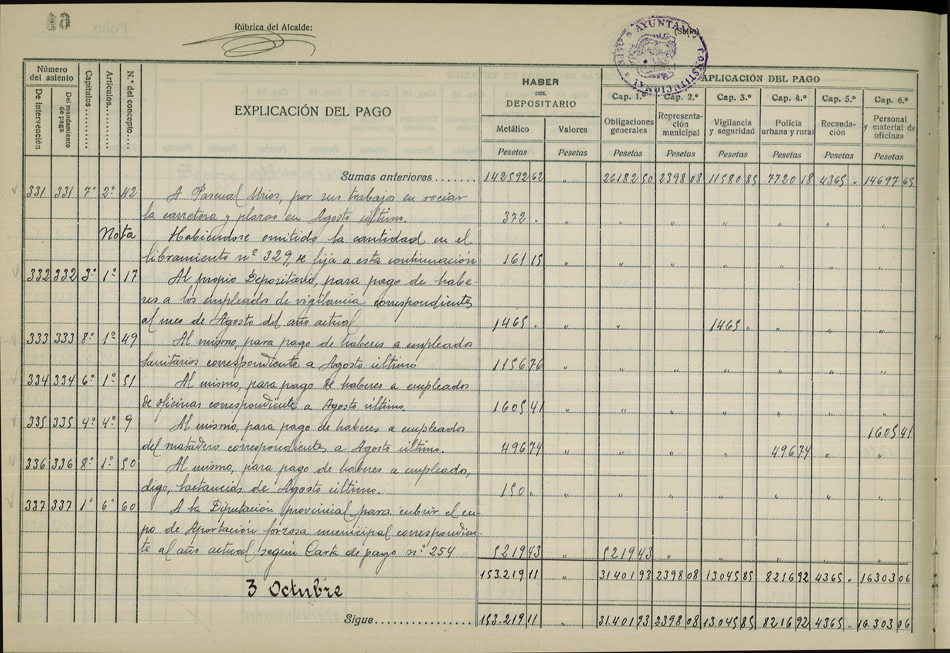 Rúbrica del Alcalde:
AYUNTAMI
CONSTITUCIONAL
Número del asiento
De intervención
Del mandamiento de pago
Capítulos
Artículos
N.º del concepto
EXPLICACIÓN DEL PAGO
HABER DEL DEPOSITARIO
Metálico
Valores
APLICACIÓN DEL PAGO
Cap. 1.º Cap. 2.º Cap. 3.º Cap. 4.º Cap. 5.º Cap. 6.º
Obligaciones generales
Representación municipal
Vigilancia y seguridad
Policía urbana y rural
Recaudación
Personal y material de oficinas
Pesetas Pesetas Pesetas Pesetas Pesetas Pesetas Pesetas Pesetas
Sumas anteriores........ 142592 62 " 26182 50 2398 08 11580 85 7720 18 4365 " 14697 65
331 331 7º 2º 42 A Pascual Mrios, por sus trabajos en rociar
la carretera y plazas en Agosto último. 372 "
Nota Habiendose omitido la cantidad en el
libramiento nº 329, se fija a esta continuación 161 15
332 332 3º 1º 17 Al propio Depositario, para pago de habe-
res a los empleados de vigilancia correspondientes
al mes de Agosto del año actual 1465 " " " 1465 "
333 333 8º 1º 49 Al mismo, para pago de haberes a empleados
sanitarios correspondiente a Agosto último 1156 76
334 334 6º 1º 51 Al mismo, para pago de haberes a empleados
de oficinas correspondiente a Agosto último. 1605 41
1605 41
335 335 4º 4º 9 Al mismo, para pago de haberes a empleados
del matadero correspondientes a Agosto último. 496 74 496 74
336 336 8º 1º 50 Al mismo, para pago de haberes a empleados,
digo, lactancias de Agosto último. 150 "
337 337 1º 6º 60 A la Diputación provincial para cubrir el cu-
po de Aportación forzosa municipal correspondien-
te al año actual según Carta de pago nº 254 5219 43 " 5219 43
153.219 11 " 31.401 93 2398 08 13.045 85 8216 92 4365 " 16303 06
3 Octubre
Sigue................ 153.219 11 " 31.401 93 2398 08 13.045 85 8216 92 4365 " 16.303 06